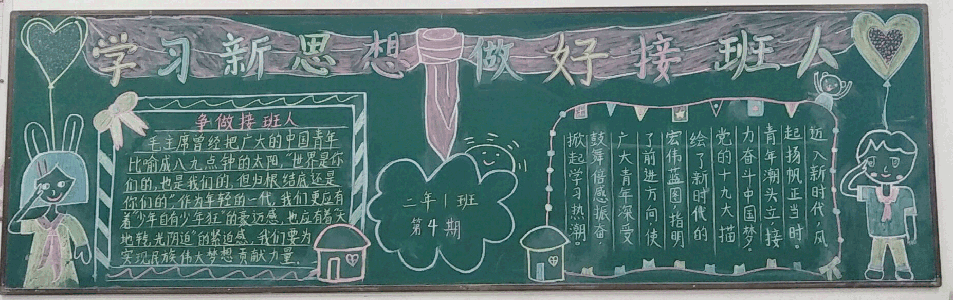 学习新思想 做好接班人
争做接班人
毛主席曾经把广大的中国青年
比喻成八九点钟的太阳,“世界是你
们的,也是我们的,但归根结底还是
你们的”作为年轻的一代,我们更应有
着“少年自有少年狂”的豪迈感,也应有着“天
地转,光阴迫”的紧迫感,我们要为
实现民族伟大梦想贡献力量。
二年1班
第4期
迈入新时代,风
起扬帆正当时。
青年潮头立,接
力奋斗中国梦。
党的十九大描
绘了新时代的
宏伟蓝图,指明
了前进方向,使
广大青年深受
鼓舞倍感振奋
掀起学习热潮。